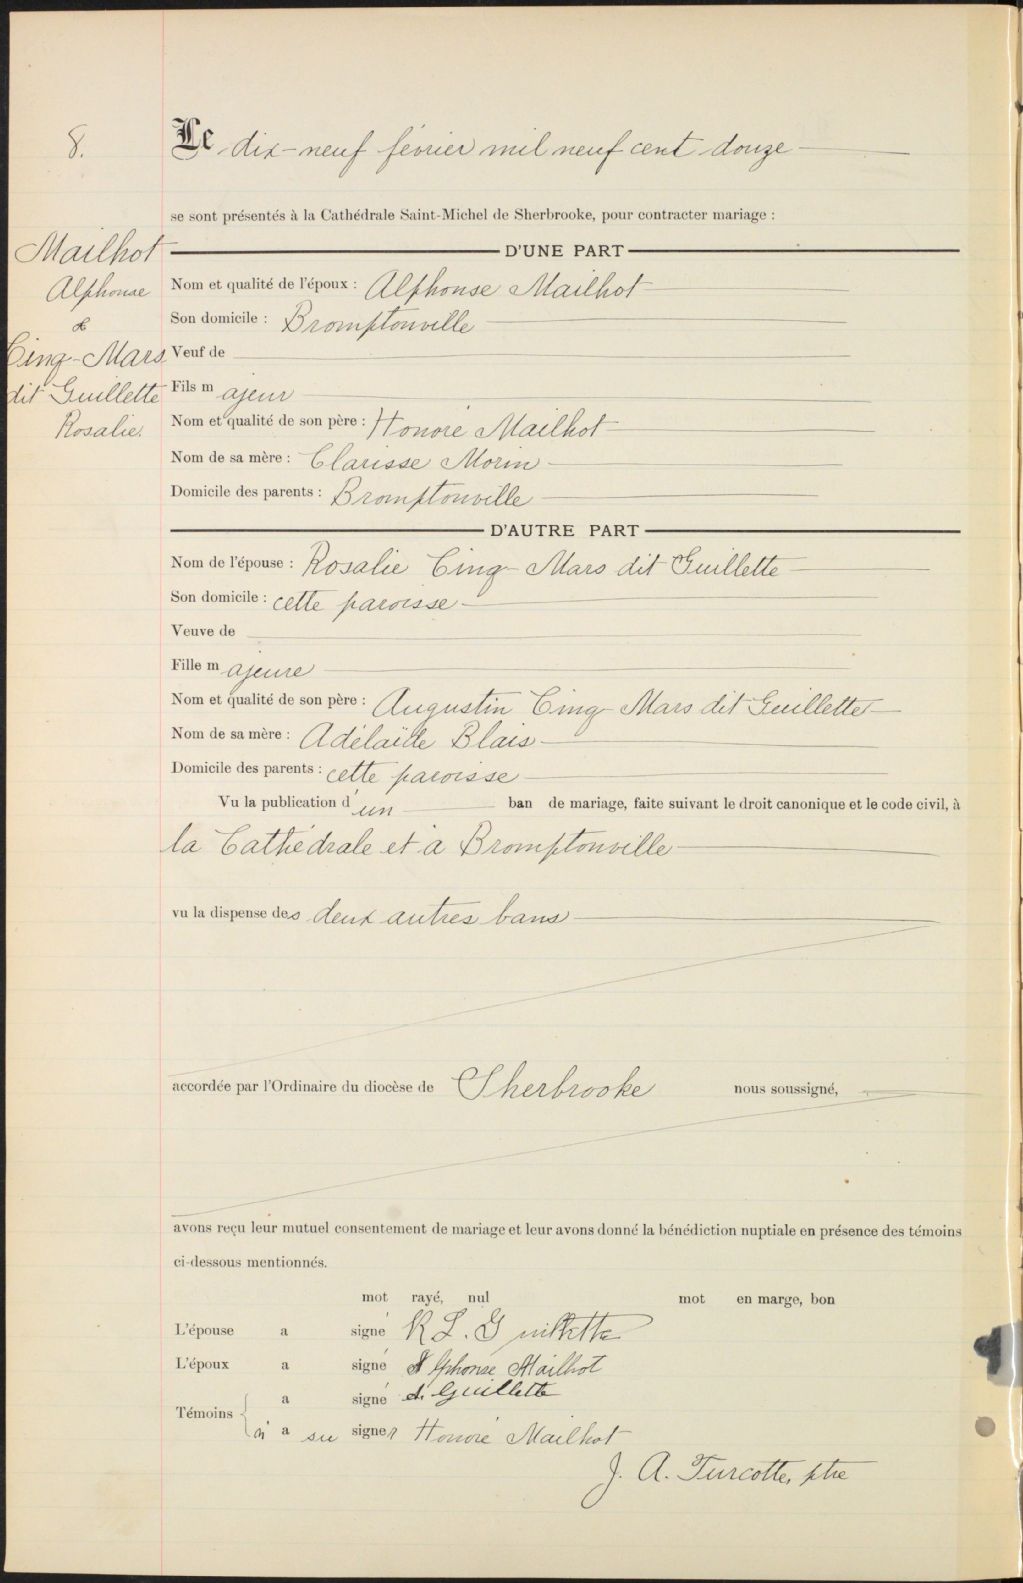 8.
Le dix-neuf février mil neuf cent douze
se sont présentés à la Cathédrale Saint-Michel de Sherbrooke, pour contracter mariage :
Mailhot
Alphonse
&
Cinq-Mars
dit Guillette
Rosalie.
D'UNE PART
Nom et qualité de l'époux : Alphonse Mailhot
Son domicile : Bromptonville
Veuf de
Fils majeur
Nom et qualité de son père : Honoré Mailhot
Nom de sa mère : Clarisse Morin
Domicile des parents : Bromptonville
D'AUTRE PART
Nom de l'épouse : Rosalie Cinq-Mars dit Guillette
Son domicile : cette paroisse
Veuve de
Fille majeure
Nom et qualité de son père : Augustin Cinq-Mars dit Guillette
Nom de sa mère : Adélaïde Blais
Domicile des parents : cette paroisse
Vu la publication d'un ban de mariage, faite suivant le droit canonique et le code civil, à
la Cathédrale et à Bromptonville
vu la dispense des deux autres bans
accordée par l'Ordinaire du diocèse de Sherbrooke nous soussigné,
avons reçu leur mutuel consentement de mariage et leur avons donné la bénédiction nuptiale en présence des témoins
ci-dessous mentionnés.
mot rayé, nul mot en marge, bon
L'épouse a signé R L. Guillette
L'époux a signé Alphonse Mailhot
a signé A. Guillette
Témoins
n'a su signer Honoré Mailhot
J. A. Turcotte, ptre